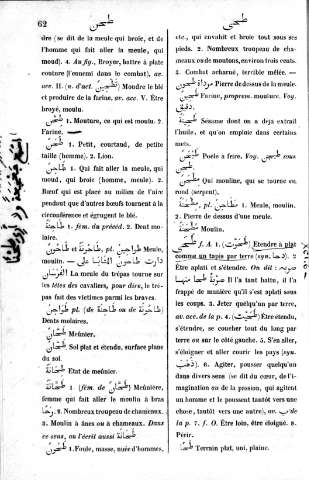 62
طحن
طحى
dre (se dit de la meule qui broie, et de
l'homme qui fait aller la meule, qui
moud). 4. Au fig., Broyer, battre à plate
couture (l'ennemi dans le combat), av.
acc. II. (n. d'act. تطحين) Moudre le blé
et produire de la farine, av. acc. V. Être
broyé, moulu.
طحن 1. Mouture, ce qui est moulu. 2.
Farine.
طحن 1. Petit, courtaud, de petite
taille (homme). 2. Lion.
طاحن 1. Qui fait aller la meule, qui
moud, qui broie (homme, meule). 2.
Bœuf qui est placé au milieu de l'aire
pendant que d'autres bœufs tournent à la
circonférence et égrugent le blé.
طاحنة 1. fem. du précéd. 2. Dent mo-
laire.
طاحون et طاحونة pl. طواحين Meule,
moulin.
الفرسان La meule du trépas tourne sur
les têtes des cavaliers, pour dire, le tré-
pas fait des victimes parmi les braves.
طواحن (pl. de طاحن ou de طاحنة)
Dents molaires.
طحان Sol plat et étendu, surface plane
du sol.
طحانة État de meunier.
طحانة 1. (fém. de طحان) Meunière,
femme qui fait aller le moulin à bras
رحا. 2. Nombreux troupeau de chameaux.
3. Moulin à ânes ou à chameaux. Dans
ce sens, on l'écrit aussi طحانة
طحون 1. Foule, masse, nuée d'hommes,
etc., qui envahit et broie tout sous ses
pieds. 2. Nombreux troupeau de cha-
meaux ou de moutons, environ trois cents.
3. Combat acharné, terrible mêlée. —
Pierre de dessus de la meule.
طحين Farine, proprem. mouture. Voy.
دقيق.
Sésame dont on a déjà extrait
l'huile, et qu'on emploie dans certains
mets.
Poêle à frire, Voy. طجن sous
طجن.
Qui mouline, qui se tourne en
rond (serpent).
مطحنة, pl. مطاحن 1. Meule, moulin.
2. Pierre de dessus d'une meule.
Moulin.
طحى f. A. 1. Étendre à plat
comme un tapis par terre (syn. دحا). 2.
Être aplati et s'étendre. On dit :
Il l'a tant battu, il l'a
frappé de manière qu'il s'est aplati sous
les coups. 3. Jeter quelqu'un par terre,
av. acc. de la p. 4. Être étendu,
s'étendre, se coucher tout du long par
terre ou sur le côté gauche. 5. S'en aller,
s'éloigner et aller courir les pays (syn.
ذهب). 6. Agiter, pousser quelqu'un
dans divers sens (se dit du cœur, de l'i-
magination ou de la passion, qui agitent
un homme et le poussent tantôt vers une
chose, tantôt vers une autre), av. ب de
la p. 7. f. O. Être loin, être éloigné. 8.
Périr.
Terrain plat, uni, plaine.